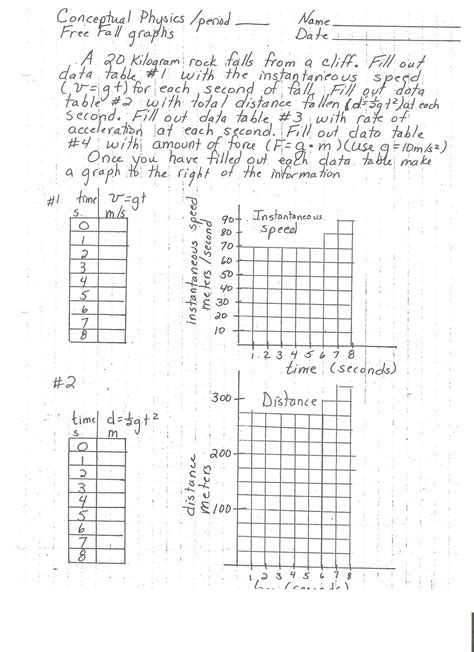 Conceptual Physics /period ___ Name ___
Free Fall graphs Date ___
A 20 Kilogram rock falls from a cliff. Fill out
data table #1 with the instantaneous speed
(v=gt) for each second of fall. Fill out data
table #2 with total distance fallen (d=½gt²) at each
second. Fill out data table #3 with rate of
acceleration at each second. Fill out data table
#4 with amount of force (F=a·m) (use g=10m/s²)
Once you have filled out each data table make
a graph to the right of the information
#1
time v=gt
s. m/s
0
1
2
3
4
5
6
7
8
instantaneous speed
meters/second
Instantaneous
speed
90
80
70
60
50
40
30
20
10
1 2 3 4 5 6 7 8
time (seconds)
#2
time d=½gt²
s m
0
1
2
3
4
5
6
7
8
distance
meters
Distance
300
200
100
1 2 3 4 5 6 7 8